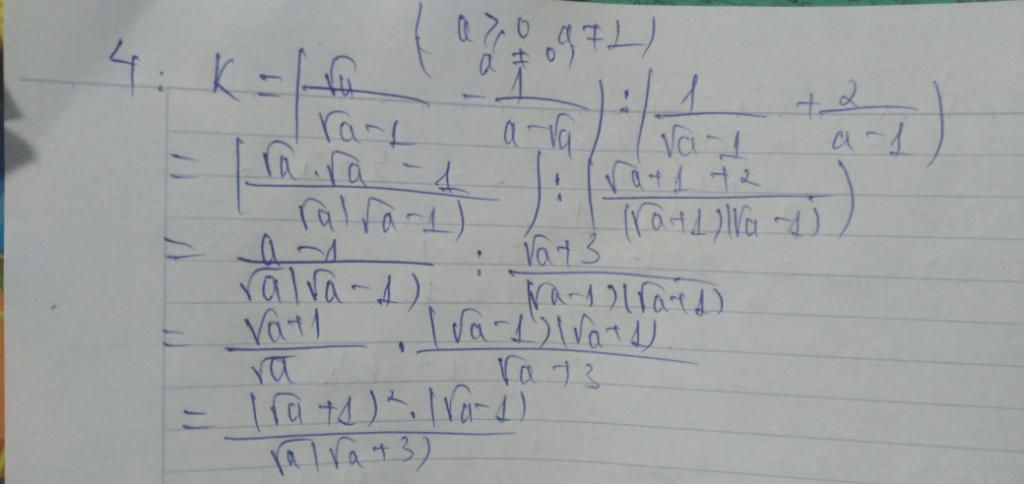 ( a ≥ 0, a ≠ 1 )
a ≠ 0
4: K = ( √a / (√a - 1) - 1 / (a - √a) ) : ( 1 / (√a - 1) + 2 / (a - 1) )
= ( (√a . √a - 1) / (√a (√a - 1)) ) : ( (√a + 1 + 2) / ((√a + 1)(√a - 1)) )
= (a - 1) / (√a (√a - 1)) : (√a + 3) / ((√a - 1)(√a + 1))
= (√a + 1) / √a . ((√a - 1)(√a + 1)) / (√a + 3)
= ((√a + 1)² . (√a - 1)) / (√a (√a + 3))